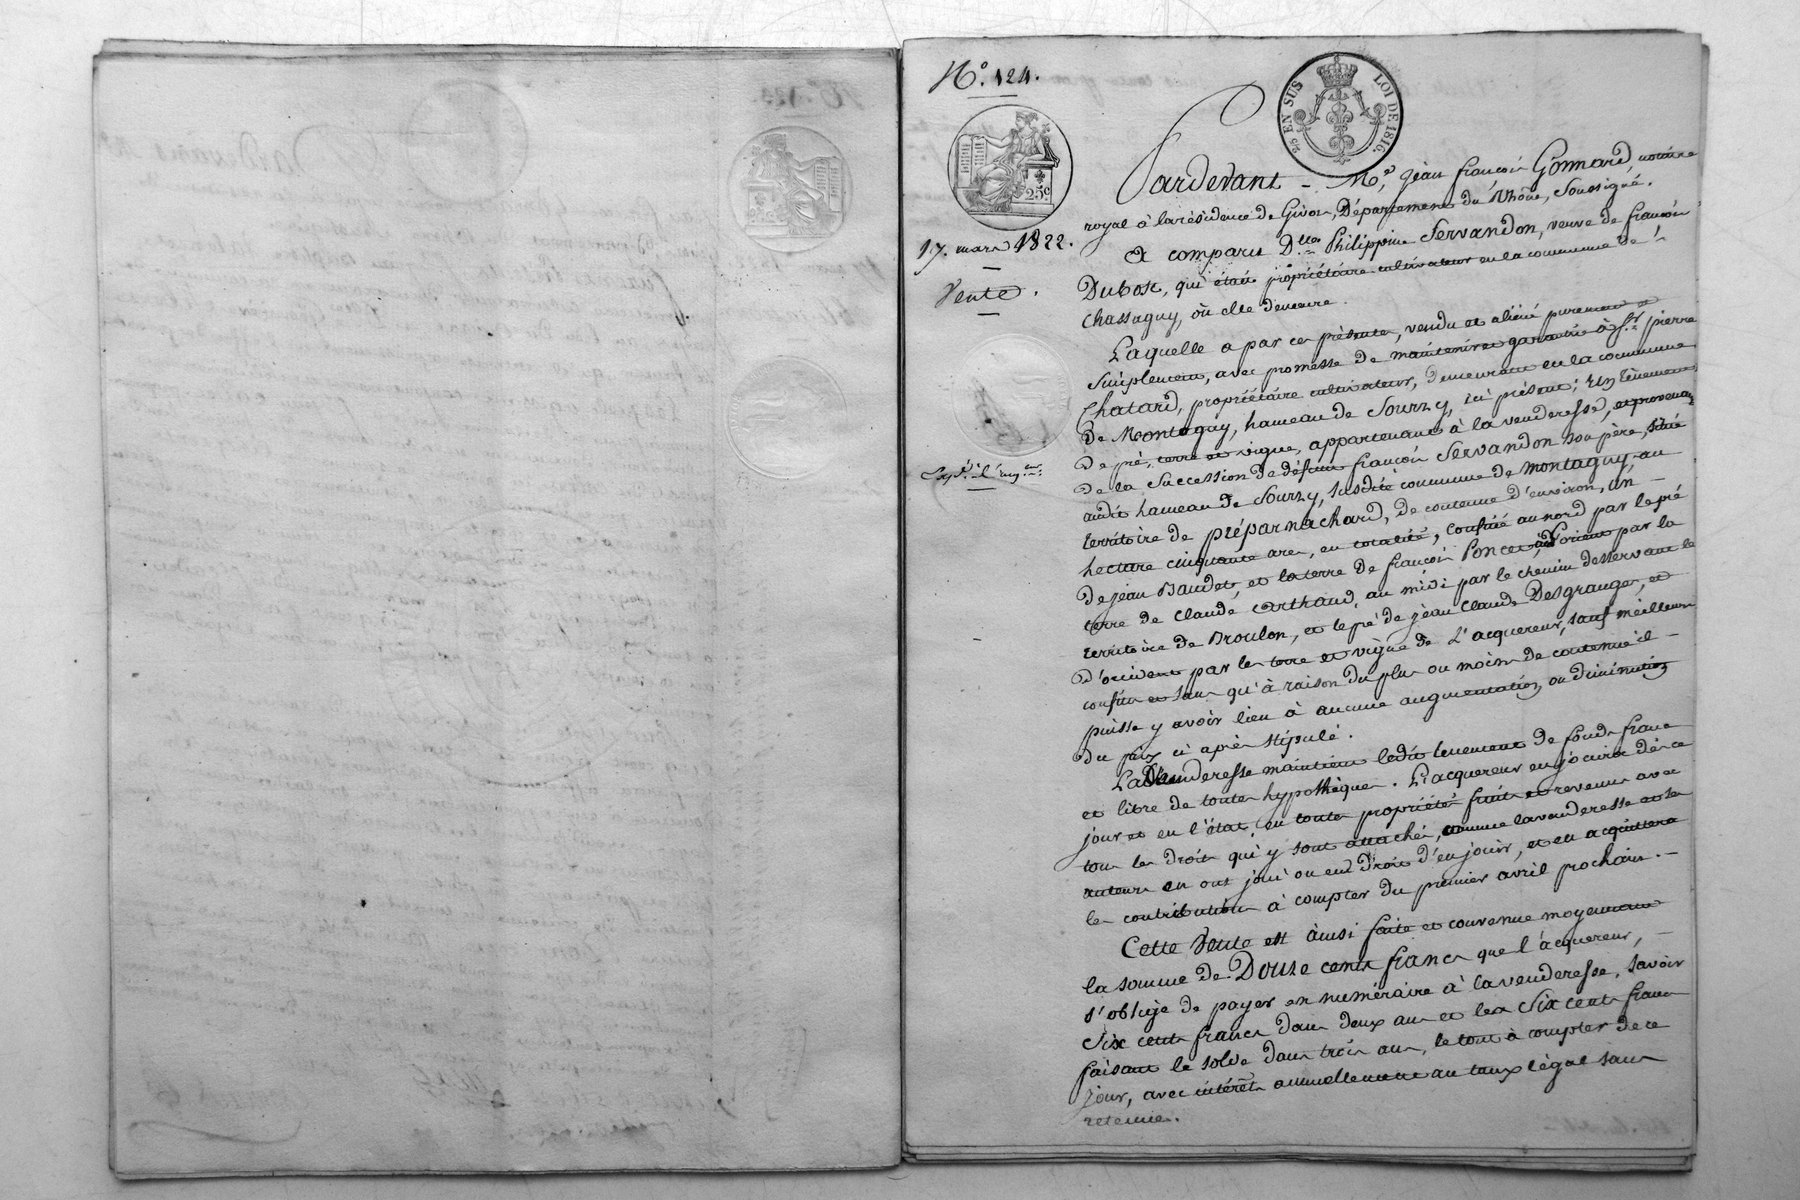 N.o 124.
25 EN SUS
LOI DE 1816.
25c
17. mars 1822.
Vente.
Pardevant M.e Jean françois Gonnard, notaire
royal à la résidence de Givors, Département du Rhône, Soussigné.
A comparu D.lle Philippine Servandon, veuve de françois
Dubost, qui était propriétaire cultivateur en la commune de
Chassagny, où elle demeure.
Laquelle a par ces présentes, vendu et aliéné purement et
Simplement, avec promesse de maintenir et garantir à S.r pierre
Chatard, propriétaire cultivateur, demeurant en la commune
de Montagny, hameau de Sourzy, ici présent; un tènement
de pré, terre et vigne, appartenant à la venderesse, et provenant
de la Succession de défunt françois Servandon son père, situé
audit hameau de Sourzy, susdite commune de montagny, au
territoire de préparnachard, de contenue d'environ, un
hectare cinquante ares, en totalité, confiné au nord par le pré
de jean Baudet, et la terre de françois Poncet, à l'orient par la
terre de Claude Arthaud, au midi par le chemin desservant le
territoire de Broulon, et le pré de jean Claude Desgranges, et
d'occident par les terre et vigne de L'acquereur, sauf meilleurs
confins et sans qu'à raison du plus ou moins de contenue il
puisse y avoir lieu à aucune augmentation ou diminution
du prix ci après stipulé.
La Venderesse maintient ledit tenement de fonds franc
et libre de toutes hypothèques. L'acquereur en jouira dès ce
jour et en l'état, en toute propriété, fruits et revenus avec
tous les droits qui y sont attachés, comme la venderesse et ses
auteurs en ont joui ou eu droit d'en jouir, et en acquittera
les contributions à compter du premier avril prochain.
Cette Vente est ainsi faite et convenue moyennant
la somme de Douze cents francs que l'acquereur,
s'oblige de payer en numéraire à la venderesse, savoir
Six cents francs dans deux ans et les Six cents francs
faisant le solde dans trois ans, le tout à compter de ce
jour, avec intérêts annuellement au taux légal sans
retenue.